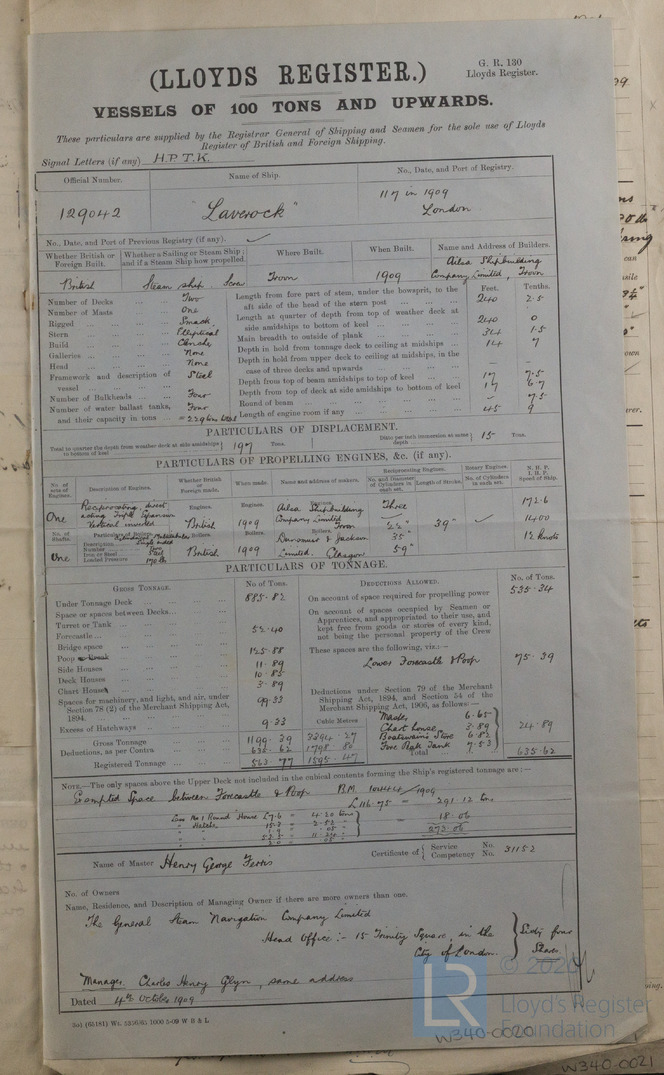 G. R. 130
Lloyds Register.
(LLOYDS REGISTER.)
VESSELS OF 100 TONS AND UPWARDS.
These particulars are supplied by the Registrar General of Shipping and Seamen for the sole use of Lloyds
Register of British and Foreign Shipping.
Signal Letters (if any) H.P.T.K.
Official Number. Name of Ship. No., Date, and Port of Registry.
129042 "Laverock" 117 in 1909
London
No., Date, and Port of Previous Registry (if any).
Whether British or Foreign Built. Whether a Sailing or Steam Ship; and if a Steam Ship how propelled. Where Built. When Built. Name and Address of Builders.
British Steam ship Screw Troon 1909 Ailsa Shipbuilding Company Limited, Troon
Feet. Tenths.
Number of Decks Two
Number of Masts One
Rigged Smack
Stern Elliptical
Build Clencher
Galleries None
Head None
Framework and description of vessel Steel
Number of Bulkheads Four
Number of water ballast tanks, and their capacity in tons Four = 229 tons total
Length from fore part of stem, under the bowsprit, to the aft side of the head of the stern post 240 2.5
Length at quarter of depth from top of weather deck at side amidships to bottom of keel 240 0
Main breadth to outside of plank 34 1.5
Depth in hold from tonnage deck to ceiling at midships 14 7
Depth in hold from upper deck to ceiling at midships, in the case of three decks and upwards - -
Depth from top of beam amidships to top of keel 17 7.5
Depth from top of deck at side amidships to bottom of keel 17 6.7
Round of beam 7.5
Length of engine room if any 45 9
PARTICULARS OF DISPLACEMENT.
Total to quarter the depth from weather deck at side amidships to bottom of keel 197 Tons. Ditto per inch immersion at same depth 15 Tons.
PARTICULARS OF PROPELLING ENGINES, &c. (if any).
No. of sets of Engines. Description of Engines. Whether British or Foreign made. When made. Name and address of makers. Reciprocating Engines. Rotary Engines. N. H. P.
No. and Diameter of Cylinders in each set. Length of Stroke. No. of Cylinders in each set. I. H. P. Speed of Ship.
One Reciprocating, direct acting Triple Expansion Vertical inverted Engines. British Engines. 1909 Engines. Ailsa Shipbuilding Company Limited Troon Three 22" 35" 59" 39" 172.6
1400
12 knots
No. of Shafts. Particulars of Boilers. Boilers. Boilers. Boilers.
Description
Number
Iron or Steel Steel
Loaded Pressure 170 lb
One British 1909 Dunsmuir & Jackson Limited. Glasgow
PARTICULARS OF TONNAGE.
GROSS TONNAGE. No of Tons. DEDUCTIONS ALLOWED. No. of Tons.
Under Tonnage Deck 885.82
Space or spaces between Decks
Turret or Tank
Forecastle 52.40
Bridge space
Poop 125.88
Side Houses 11.89
Deck Houses 10.85
Chart House 3.89
Spaces for machinery, and light, and air, under Section 78 (2) of the Merchant Shipping Act, 1894. 99.33
Excess of Hatchways 9.33 Cubic Metres
Gross Tonnage 1199.39 3394.27
Deductions, as per Contra 635.62 1798.80
Registered Tonnage 563.77 1595.47
On account of space required for propelling power 535.34
On account of spaces occupied by Seamen or Apprentices, and appropriated to their use, and kept free from goods or stores of every kind, not being the personal property of the Crew
These spaces are the following, viz.:—
Lower Forecastle & Poop 75.39
Deductions under Section 79 of the Merchant Shipping Act, 1894, and Section 54 of the Merchant Shipping Act, 1906, as follows:—
Master 6.65
Chart house 3.89
Boatswain's Store 6.82
Fore Peak Tank 7.53
24.89
Total 635.62
NOTE.—The only spaces above the Upper Deck not included in the cubical contents forming the Ship's registered tonnage are:—
Exempted Space between Forecastle & Poop B.M. 10444/1909
L 116.75 = 291.12 tons
Less No 1 Round House L 7.6 = 4.20 tons
" Hatch
18.06
273.06
Name of Master Henry George Ferris Certificate of Service No.
Competency No. 31152
No. of Owners
Name, Residence, and Description of Managing Owner if there are more owners than one.
The General Steam Navigation Company Limited
Head Office:- 15 Trinity Square, in the
City of London.
Sixty four
Shares
Manager. Charles Henry Glyn, same address
Dated 4th October 1909
© 2020
LR
Lloyd's Register
Foundation
W340-0020
W340-0021